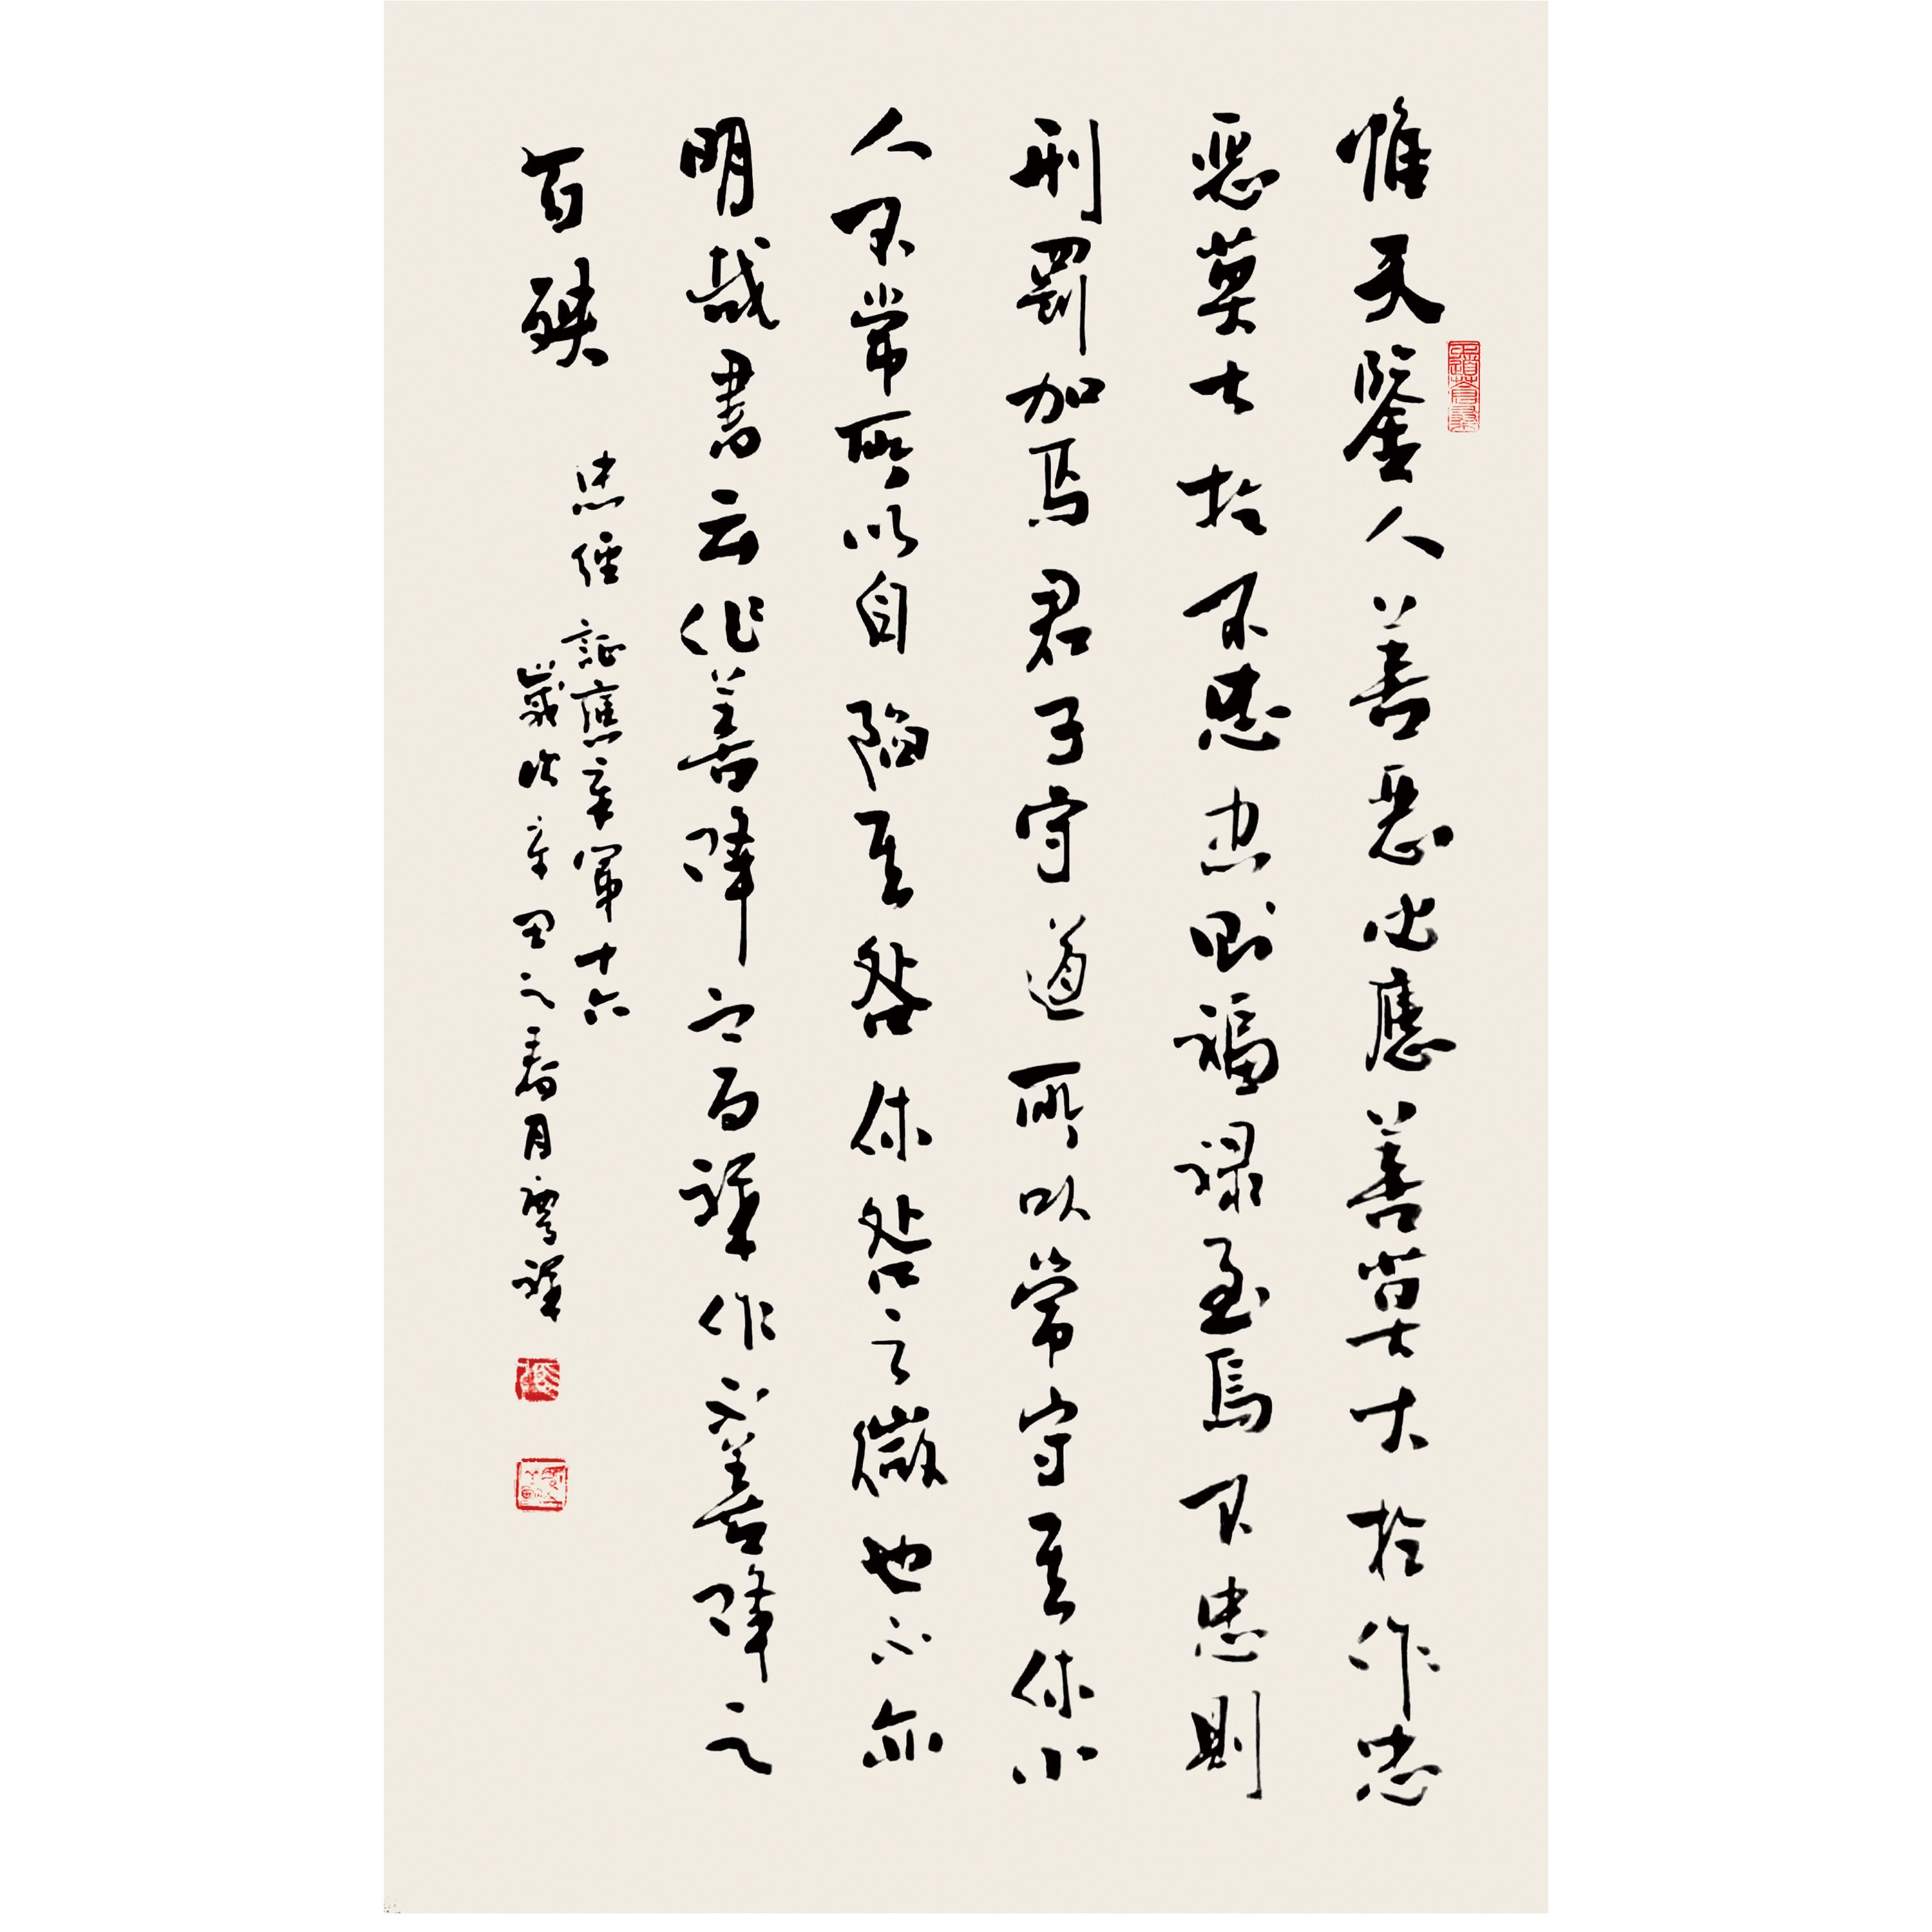 惟天鑒人善惡必應善莫大於作忠
惡莫大於不忠忠則福祿至焉不忠則
刑罰加焉君子守道所以常守其休小
人不常所以自陷其咎休咎之徵也不亦
明哉書云作善降之百祥作不善降之
百殃
忠經證應章第十六
歲次辛丑之春月